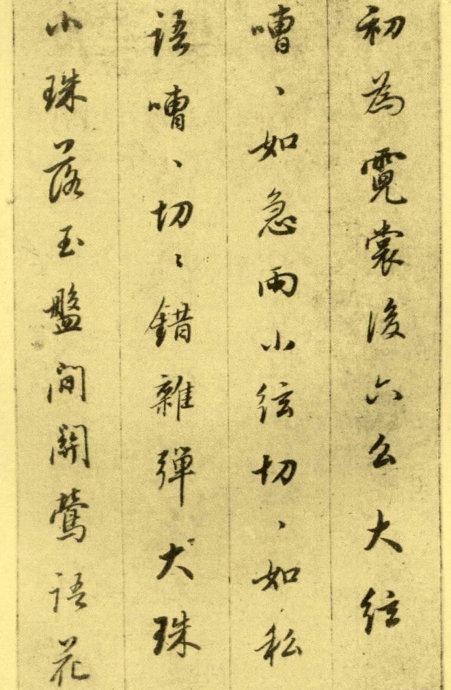 初為霓裳後六么大絃
嘈、如急雨小絃切、如私
語嘈、切〻錯雜彈大珠
小珠落玉盤間關鶯語花